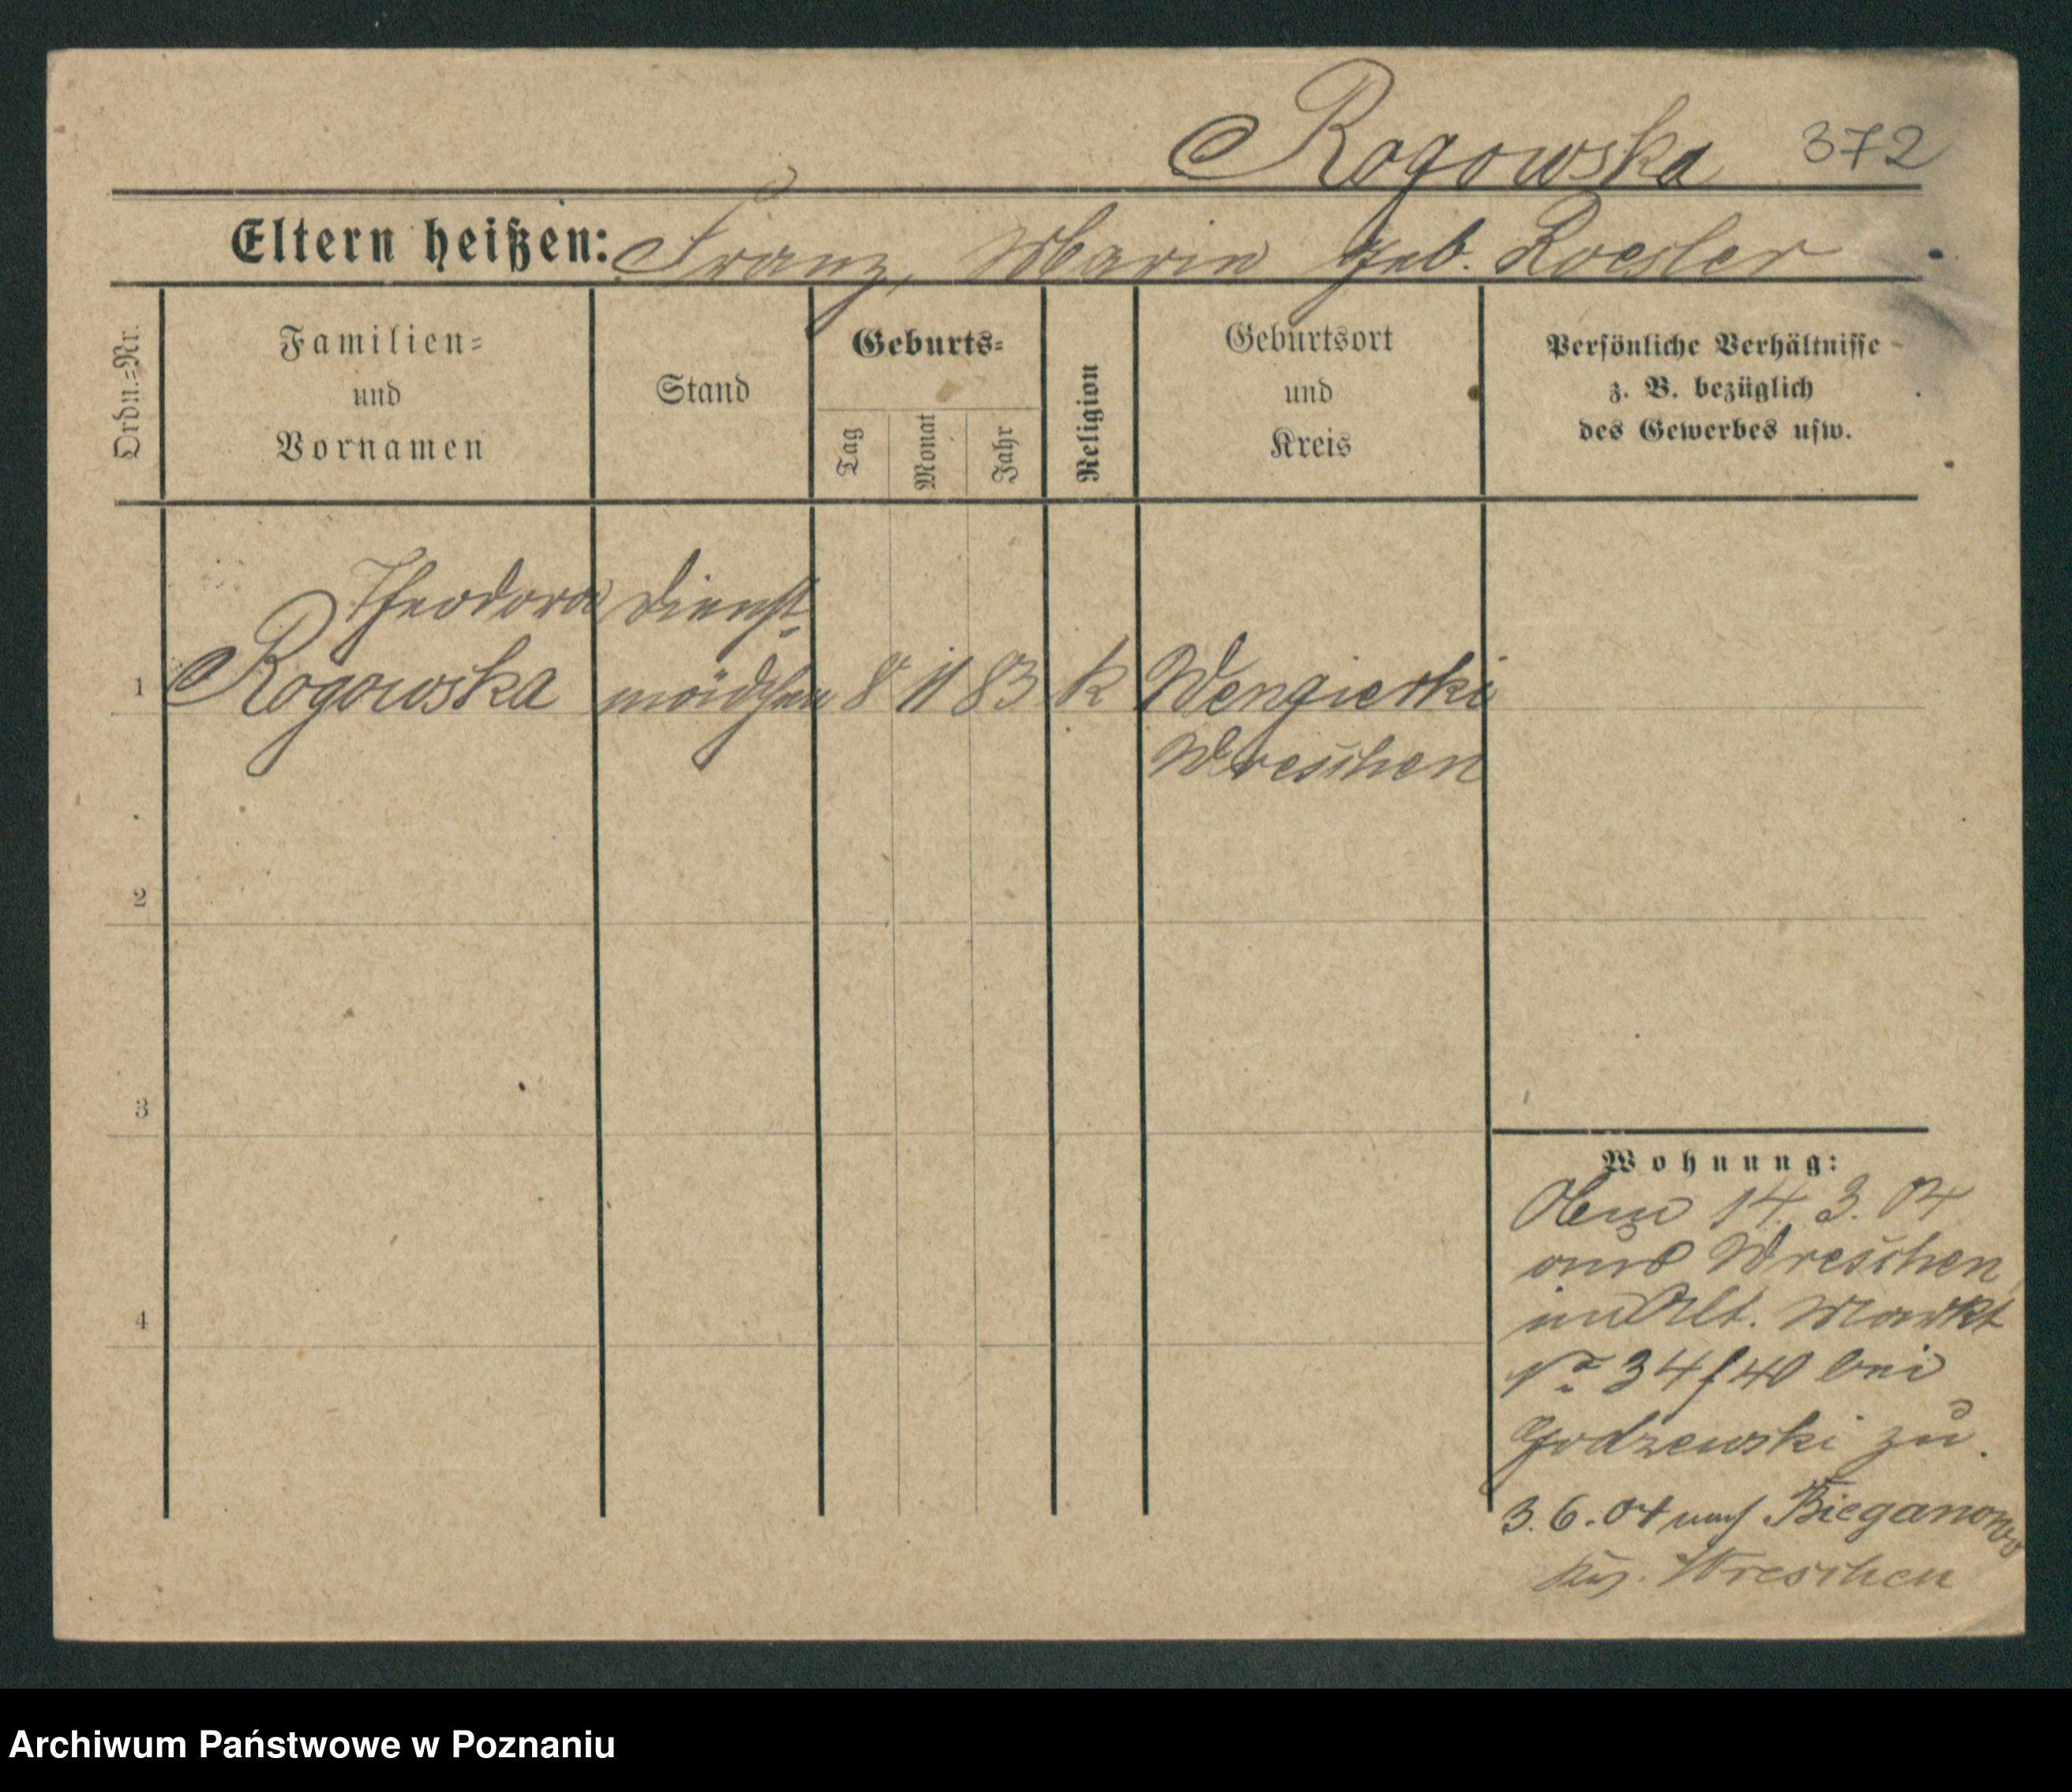 Rogowska 372
Eltern heißen: Franz, Marie geb. Roesler
Ordn.=Nr.
Familien=
und
Vornamen
Stand
Geburts=
Tag
Monat
Jahr
Religion
Geburtsort
und
Kreis
Persönliche Verhältnisse
z. B. bezüglich
des Gewerbes usw.
1
Theodora
Rogowska
Dienst-
mädchen
8 11 83 k
Wengierki
Wreschen
2
3
4
Wohnung:
14. 3. 04
aus Wreschen
Alt. Markt
No 34/40 bei
Godzewski zu.
3. 6. 04 nach Bieganowo
Wreschen
Archiwum Państwowe w Poznaniu